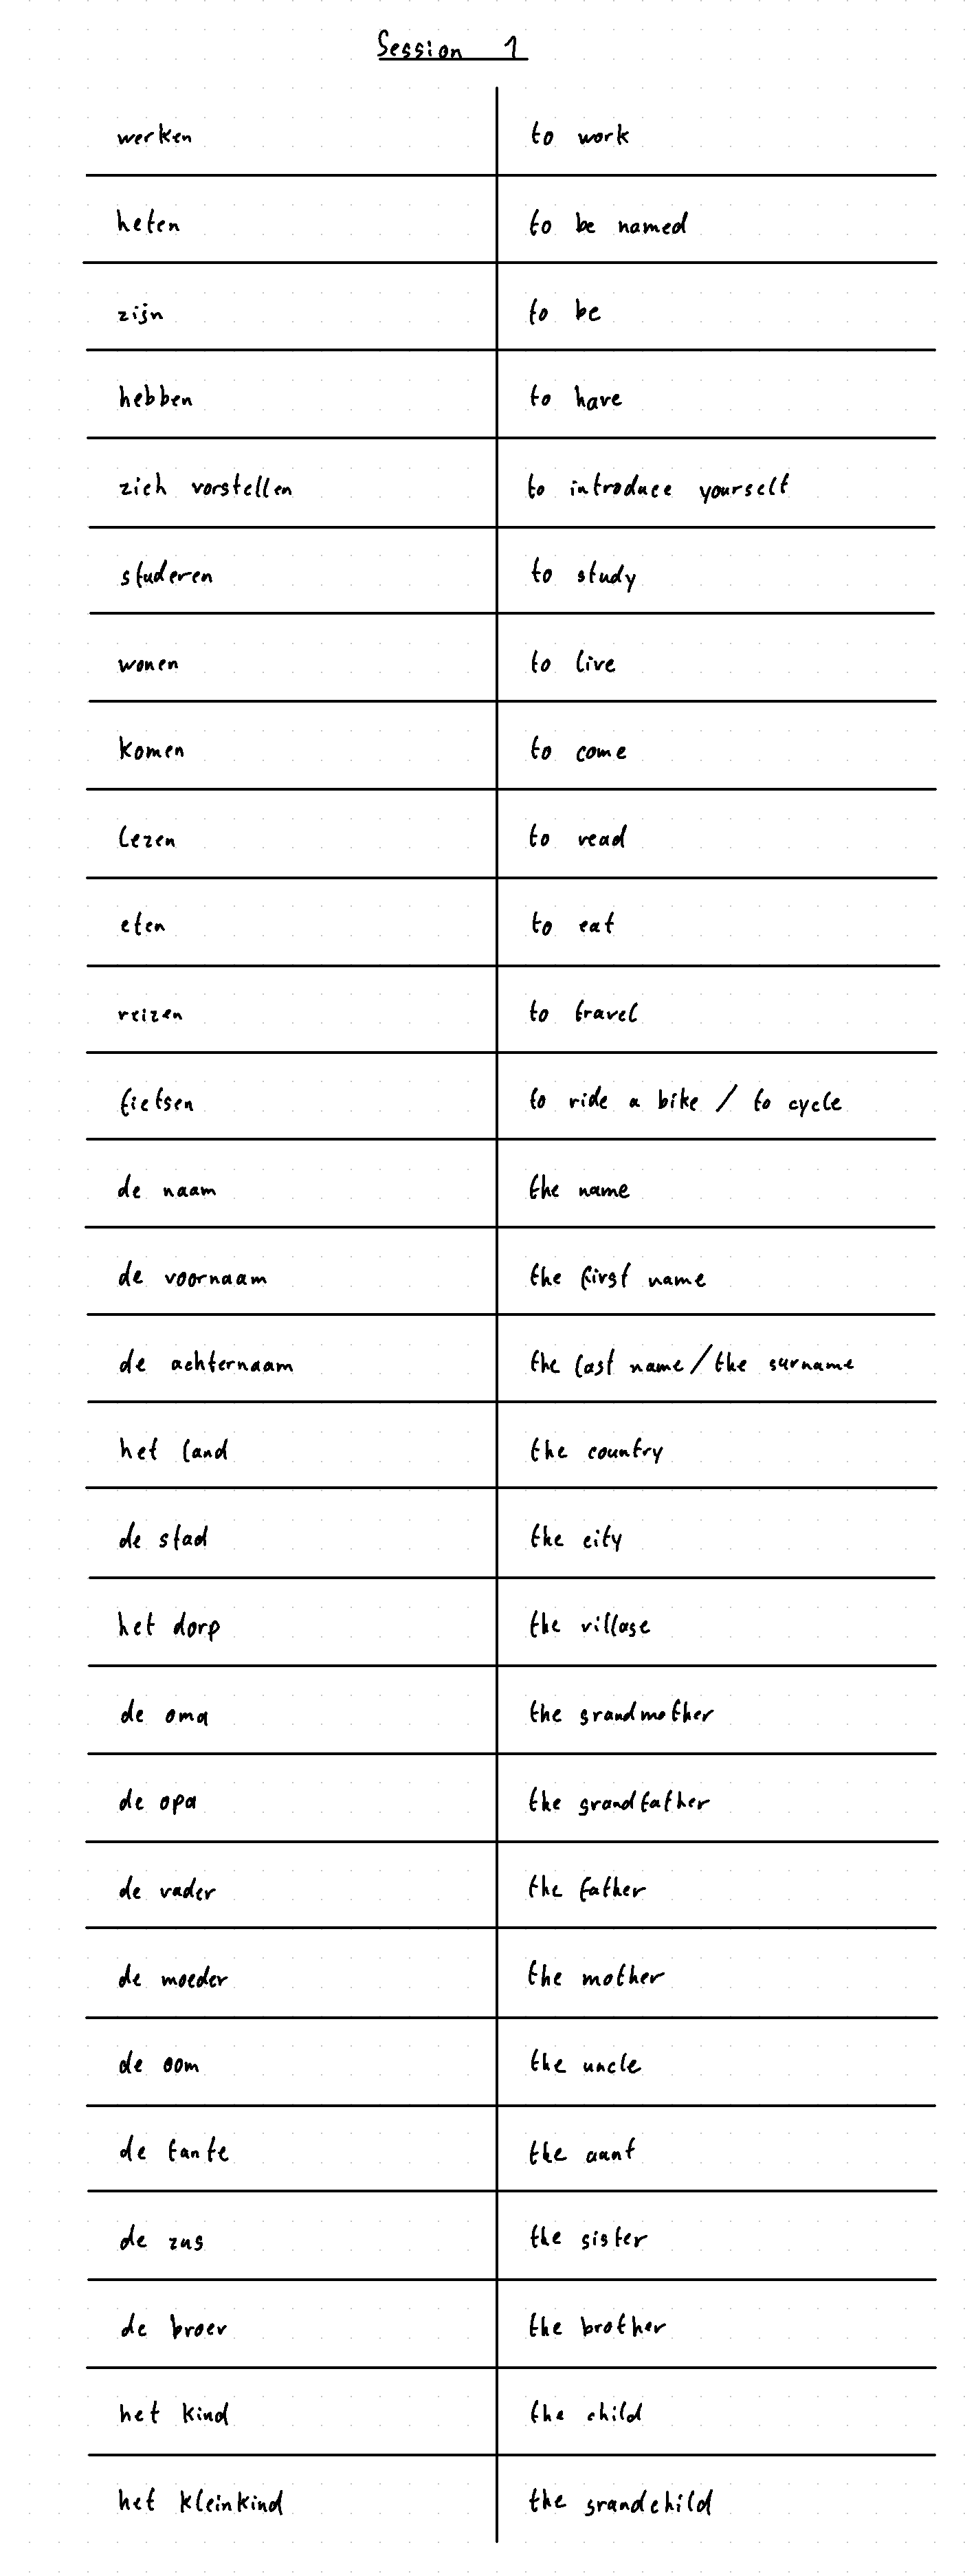 Session 1
werken to work
heten to be named
zijn to be
hebben to have
zich vorstellen to introduce yourself
studeren to study
wonen to live
komen to come
lezen to read
eten to eat
reizen to travel
fietsen to ride a bike / to cycle
de naam the name
de voornaam the first name
de achternaam the last name / the surname
het land the country
de stad the city
het dorp the village
de oma the grandmother
de opa the grandfather
de vader the father
de moeder the mother
de oom the uncle
de tante the aunt
de zus the sister
de broer the brother
het kind the child
het kleinkind the grandchild